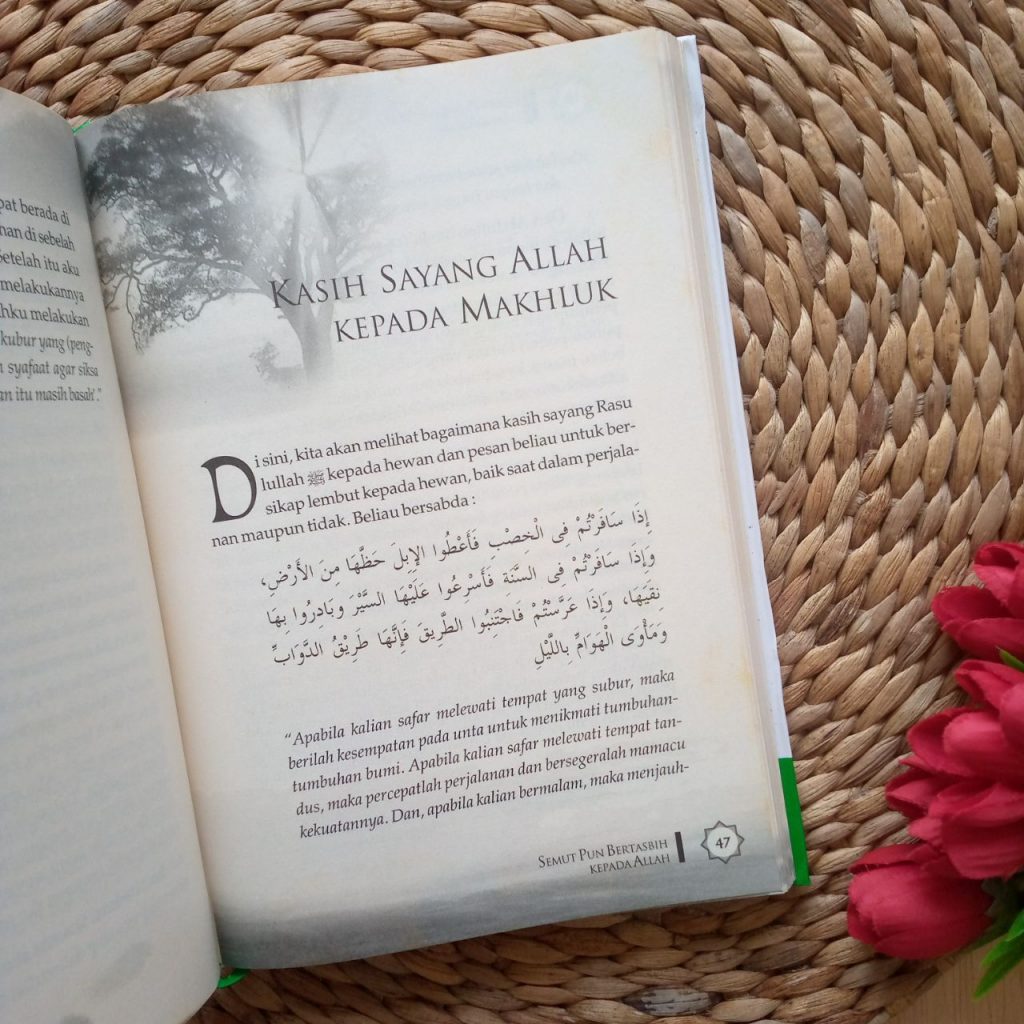 pat berada di
han di sebelah
Setelah itu aku
melakukannya
hku melakukan
kubur yang (peng-
n syafaat agar siksa
an itu masih basah'."
KASIH SAYANG ALLAH
KEPADA MAKHLUK
Di sini, kita akan melihat bagaimana kasih sayang Rasu
lullah ﷺ kepada hewan dan pesan beliau untuk ber-
sikap lembut kepada hewan, baik saat dalam perjala-
nan maupun tidak. Beliau bersabda :
إِذَا سَافَرْتُمْ فِى الْخِصْبِ فَأَعْطُوا الإِبِلَ حَظَّهَا مِنَ الأَرْضِ،
وَإِذَا سَافَرْتُمْ فِى السَّنَةِ فَأَسْرِعُوا عَلَيْهَا السَّيْرَ وَبَادِرُوا بِهَا
نِقْيَهَا، وَإِذَا عَرَّسْتُمْ فَاجْتَنِبُوا الطَّرِيقَ فَإِنَّهَا طَرِيْقُ الدَّوَابِّ
وَمَأْوَى الْهَوَامِّ بِاللَّيْلِ
"Apabila kalian safar melewati tempat yang subur, maka
berilah kesempatan pada unta untuk menikmati tumbuhan-
tumbuhan bumi. Apabila kalian safar melewati tempat tan-
dus, maka percepatlah perjalanan dan bersegeralah mamacu
kekuatannya. Dan, apabila kalian bermalam, maka menjauh-
SEMUT PUN BERTASBIH
KEPADA ALLAH
47